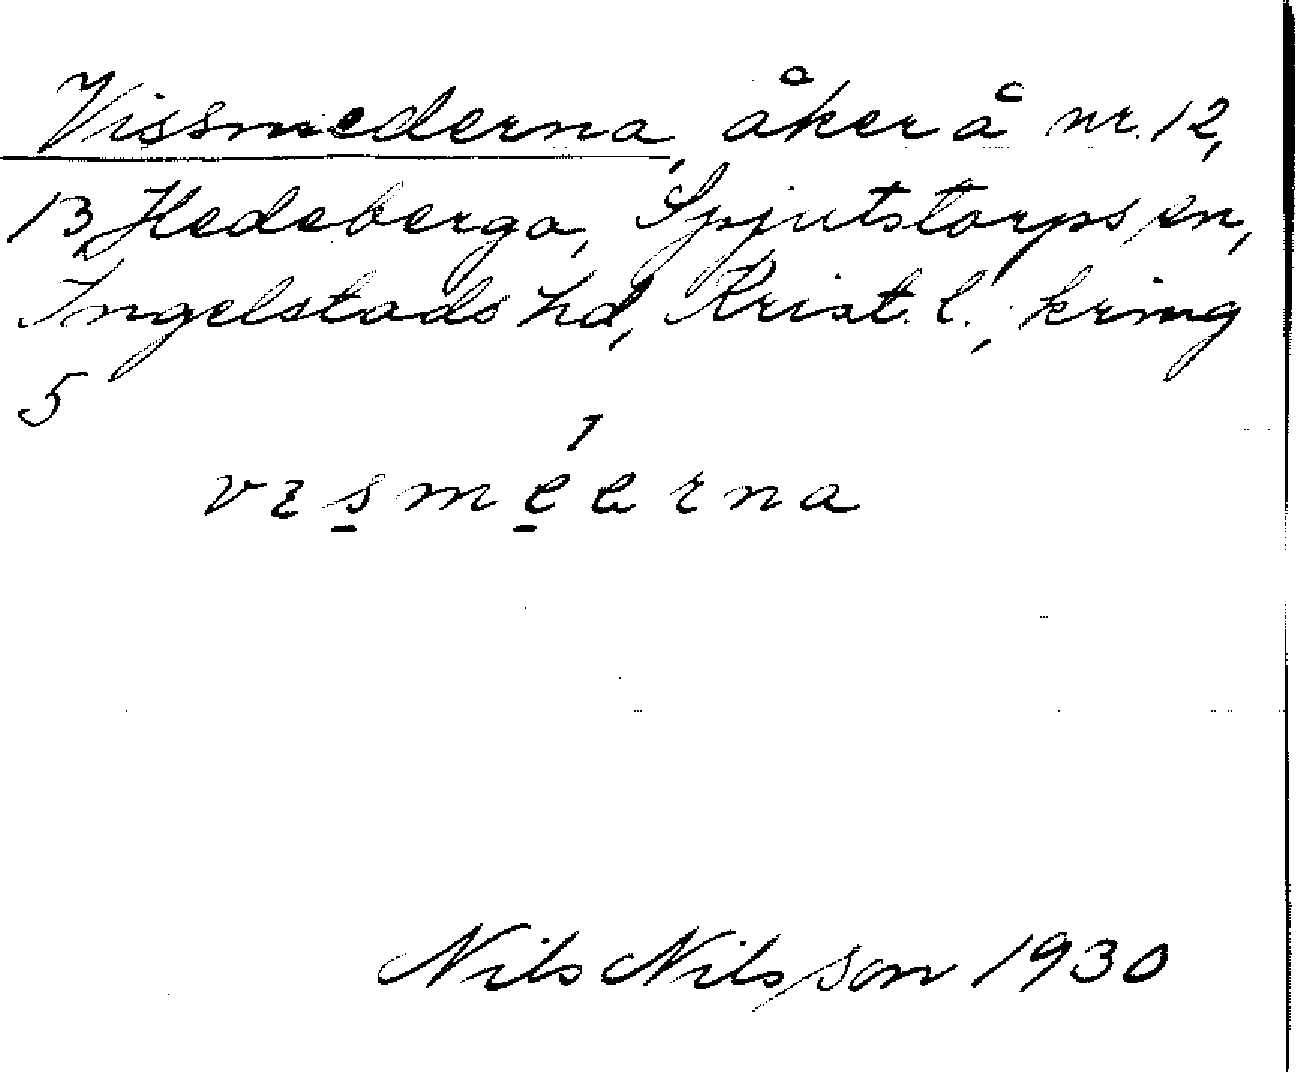 Vissmederna, åker å nr. 12,
13 Hedeberga, Spjutstorps sn,
Ingelstads hd, Krist. l., kring
5
Nils Nilsson 1930